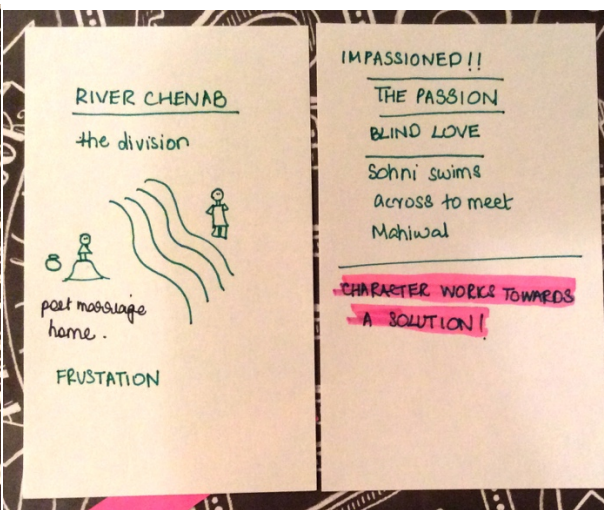 RIVER CHENAB
the division
post marriage
home.
FRUSTATION
IMPASSIONED!!
THE PASSION
BLIND LOVE
Sohni swims
across to meet
Mahiwal
CHARACTER WORKS TOWARDS
A SOLUTION!